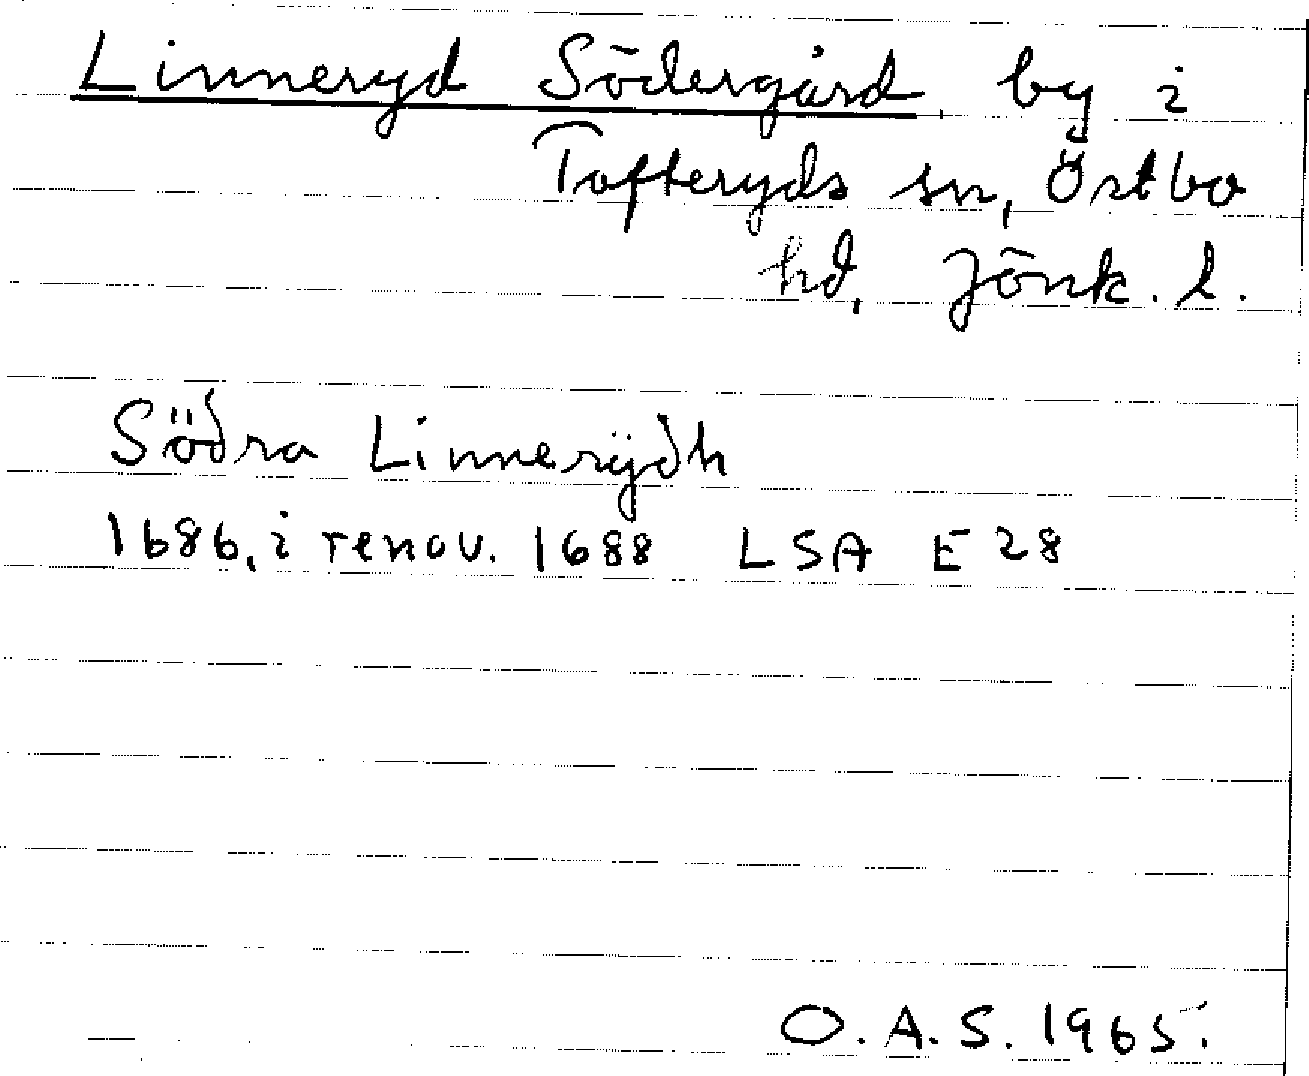 Linneryd Södergård, by i
Tofteryds sn, Östbo
hd, Jönk. l.
Södra Linnerÿdh
1686, i renov. 1688 LSA E 28
O. A. S. 1965.